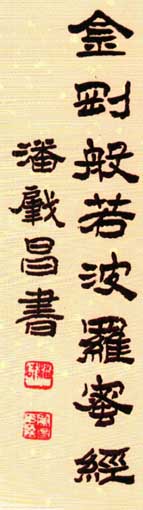 金剛般若波羅蜜經
潘戲昌書